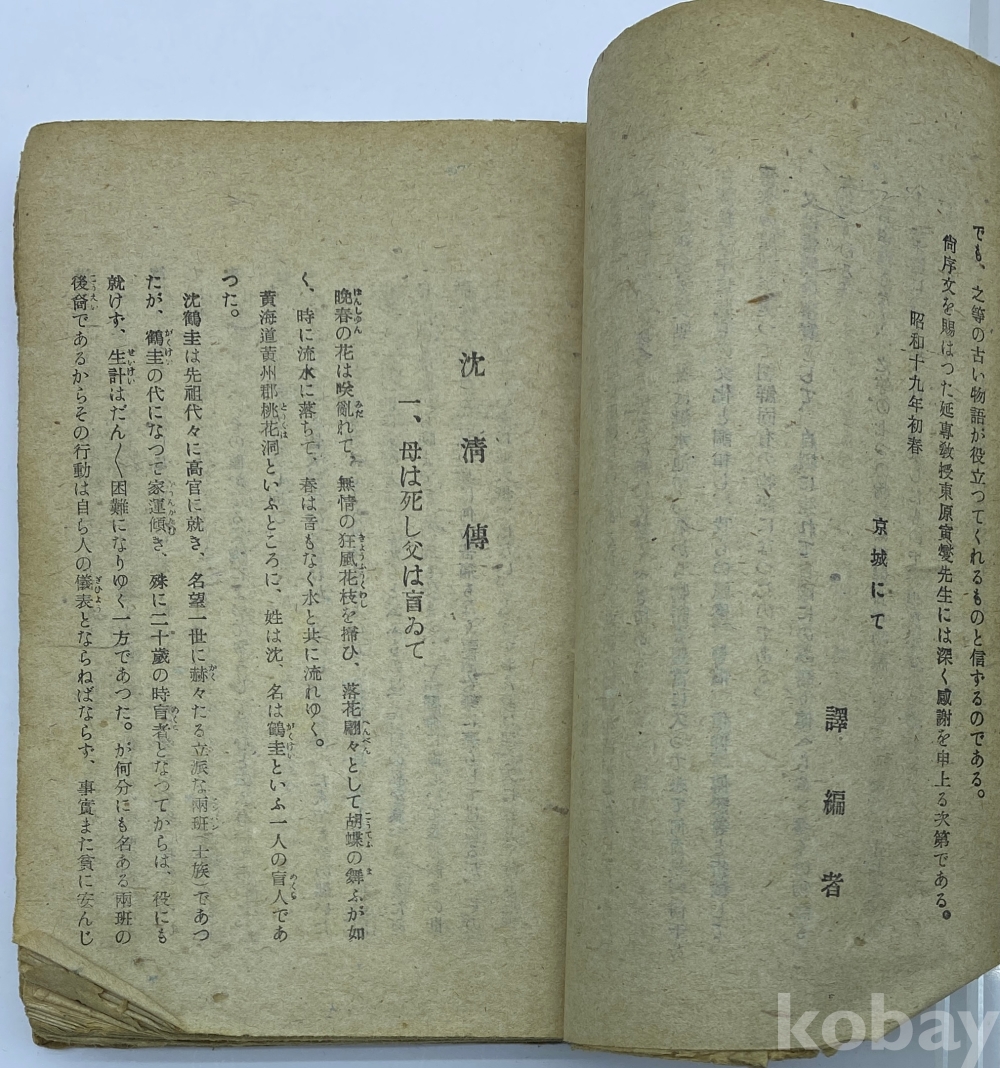 でも、之等の古い物語が役立つてくれるものと信ずるのである。
尙序文を賜はつた延專敎授東原寅燮先生には深く感謝を申上る次第である。
昭和十九年初春
京城にて
譯編者
沈淸傳
一、母は死し父は盲ゐて
晩春の花は咲亂れて、無情の狂風花枝を掃ひ、落花翩々として胡蝶の舞ふが如
く、時に流水に落ちて、春は音もなく水と共に流れゆく。
黄海道黄州郡桃花洞といふところに、姓は沈、名は鶴圭といふ一人の盲人であ
つた。
沈鶴圭は先祖代々に高官に就き、名望一世に赫々たる立派な兩班(士族)であつ
たが、鶴圭の代になつて家運傾き、殊に二十歲の時盲者となつてからは、役にも
就けず、生計はだん〱困難になりゆく一方であつた。が何分にも名ある兩班の
後裔であるからその行動は自ら人の儀表とならねばならず、事實また貧に安んじ
kobay